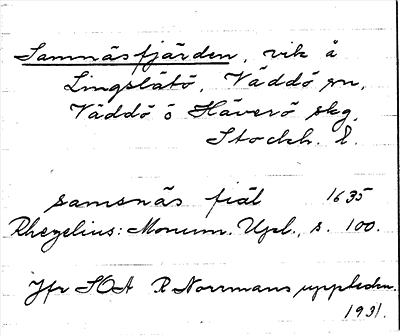 Samnäsfjärden, vik å
Lingslätö, Väddö sn,
Väddö ö Häverö skg.
Stockh. l.
samsnäs fiäl 1635
Rhezelius: Monum. Upl., s. 100.
Jfr SOA R Norrmans uppteckn.
1931.